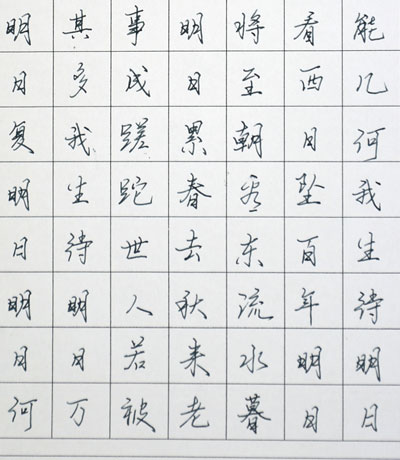 明日复明日明日何
其多我生待明日万
事成蹉跎世人若被
明日累春去秋来老
将至朝看东流水暮
看西日坠百年明日
能几何我生待明日